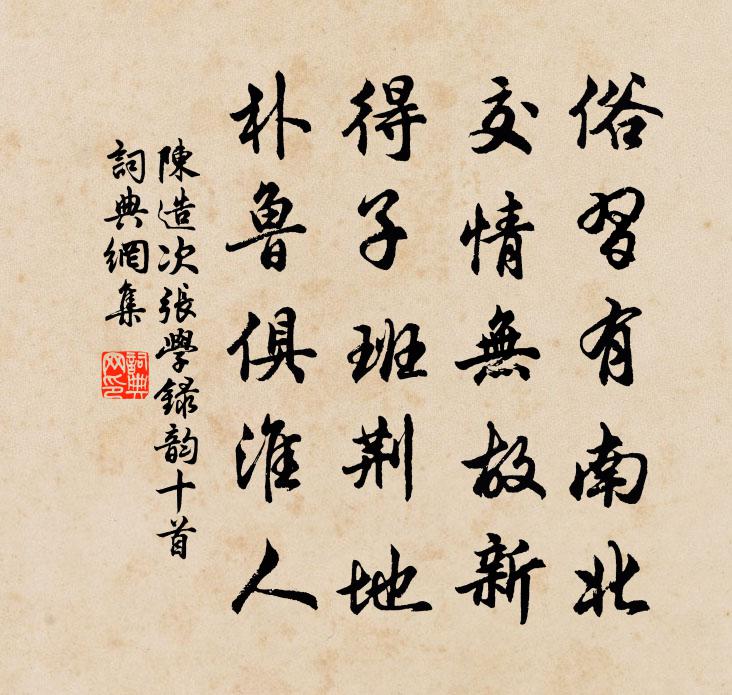 俗習有南北
交情無故新
得子班荆地
朴魯俱淮人
陳造次張學録韵十首
詞典網集
詞典網印